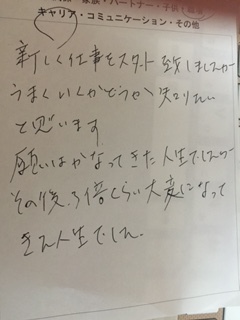 キャリア・コミュニケーション・その他
新しく仕事をスタート致しましたが
うまくいくかどうか知りたい
と思います
願いはかなってきた人生でしたが
その後、3倍くらい大変になって
きた人生でした。